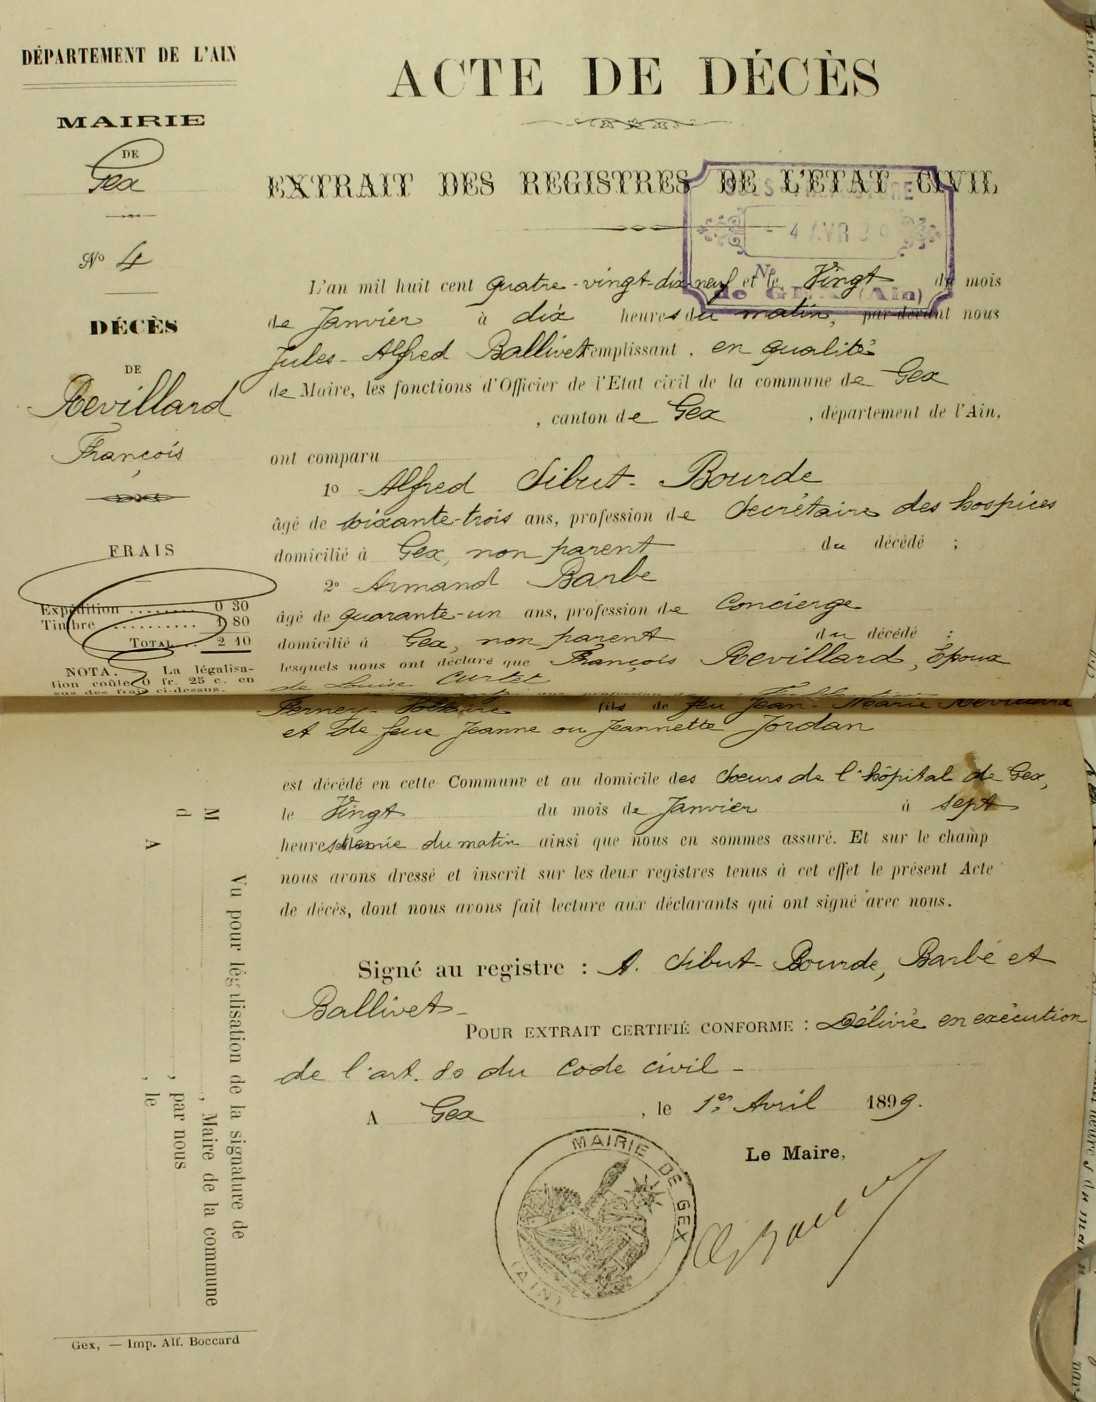 DÉPARTEMENT DE L'AIN
MAIRIE
DE
Gex
No 4
DÉCÈS
DE
Revillard
François
FRAIS
Expédition ........ 0 30
Timbre .......... 1 80
TOTAL... 2 10
NOTA. — La légalisa-
tion coûte 0 fr. 25 c. en
sus des frais ci-dessus.
ACTE DE DÉCÈS
EXTRAIT DES REGISTRES DE L'ÉTAT CIVIL
SOUS-PRÉFECTURE
- 4 AVR 99
No
de GEX (Ain)
L'an mil huit cent quatre-vingt-dix-neuf et le Vingt du mois
de Janvier à dix heures du matin, par-devant nous
Jules-Alfred Ballivet remplissant, en qualité
de Maire, les fonctions d'Officier de l'Etat civil de la commune de Gex
, canton de Gex , département de l'Ain,
ont comparu
1o Alfred Sibut-Bourde
âgé de soixante-trois ans, profession de Secrétaire des hospices
domicilié à Gex, non parent du décédé ;
2o Armand Barbe
âgé de quarante-un ans, profession de Concierge
domicilié à Gex, non parent du décédé ;
lesquels nous ont déclaré que François Revillard, Epoux
de Louise Curtet
Ferney-Voltaire fils de feu Jean-Marie Revillard
et de feue Jeanne ou Jeannette Jordan
est décédé en cette Commune et au domicile des Sœurs de l'hôpital de Gex,
le Vingt du mois de Janvier à sept
heures demie du matin ainsi que nous en sommes assuré. Et sur le champ
nous avons dressé et inscrit sur les deux registres tenus à cet effet le présent Acte
de décès, dont nous avons fait lecture aux déclarants qui ont signé avec nous.
Signé au registre : A. Sibut-Bourde, Barbé et
Ballivet-
POUR EXTRAIT CERTIFIÉ CONFORME : Délivré en exécution
de l'art. 80 du Code civil -
A Gex , le 1er Avril 1899.
Le Maire,
MAIRIE DE GEX
(AIN)
Vu pour législisation de la signature de
M , Maire de la commune
d , par nous
A , le
Gex, — Imp. Alf. Boccard